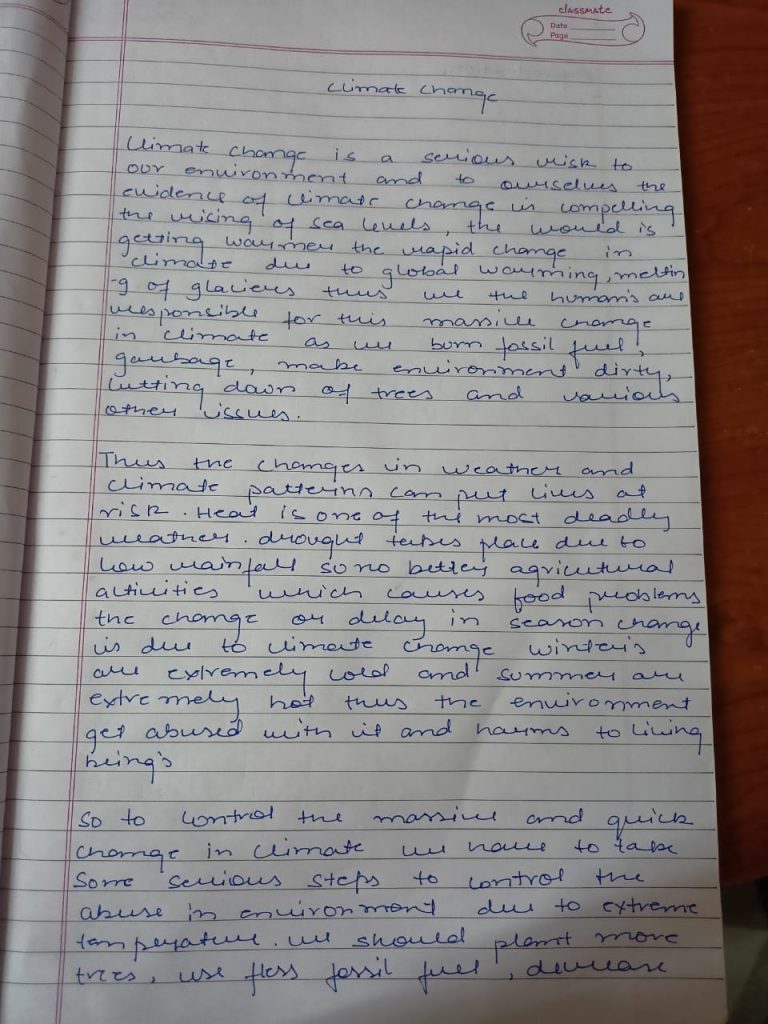 classmate
Date
Page
climate change
Climate change is a serious risk to
our environment and to ourselves the
evidence of climate change is compelling
the rising of sea levels, the world is
getting warmer the rapid change in
climate due to global warming, meltin
-g of glaciers thus we the human's are
responsible for this massive change
in climate as we burn fossil fuel,
garbage, make environment dirty,
cutting down of trees and various
other issues.
Thus the changes in weather and
climate patterns can put lives at
risk. Heat is one of the most deadly
weather. drought takes place due to
low rainfall so no better agricultural
activities which causes food problems
the change or delay in season change
is due to climate change winter's
are extremely cold and summer are
extremely hot thus the environment
get abused with it and harms to living
being's
So to control the massive and quick
change in climate we have to take
some serious steps to control the
abuse in environment due to extreme
temperature. we should plant more
trees, use less fossil fuel, decrease